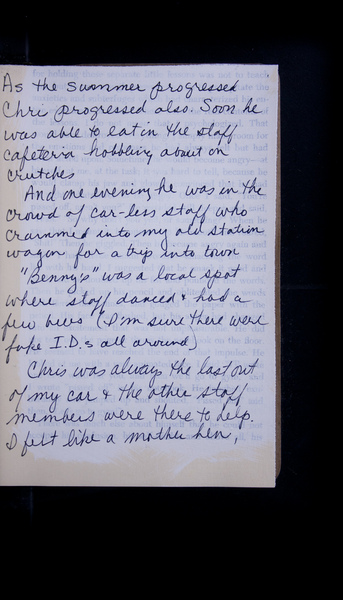 As the summer progressed
Chri progressed also. Soon he
was able to eat in the staff
cafeteria hobbling about on
crutches
And one evening he was in the
crowd of car-less staff who
crammed into my old station
wagon for a trip into town
"Benny's" was a local spot
where staff danced & had a
few brews (I'm sure there were
fake I.D.s all around)
Chris was always the last out
of my car & the other staff
members were there to help.
I felt like a mother hen,